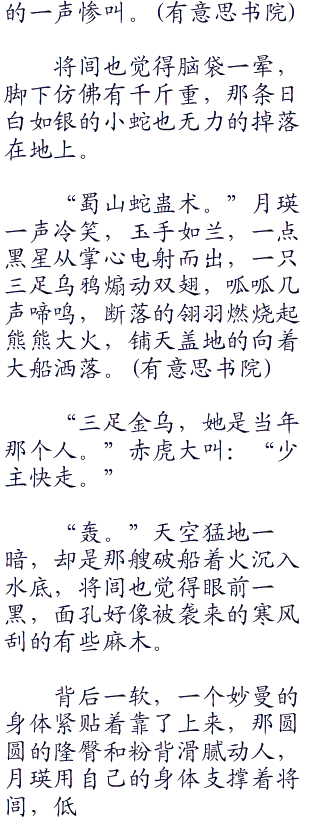 的一声惨叫。(有意思书院)
将闾也觉得脑袋一晕，
脚下仿佛有千斤重，那条日
白如银的小蛇也无力的掉落
在地上。
“蜀山蛇蛊术。”月瑛
一声冷笑，玉手如兰，一点
黑星从掌心电射而出，一只
三足乌鸦煽动双翅，呱呱几
声啼鸣，断落的翎羽燃烧起
熊熊大火，铺天盖地的向着
大船洒落。(有意思书院)
“三足金乌，她是当年
那个人。”赤虎大叫：“少
主快走。”
“轰。”天空猛地一
暗，却是那艘破船着火沉入
水底，将闾也觉得眼前一
黑，面孔好像被袭来的寒风
刮的有些麻木。
背后一软，一个妙曼的
身体紧贴着靠了上来，那圆
圆的隆臀和粉背滑腻动人，
月瑛用自己的身体支撑着将
闾，低